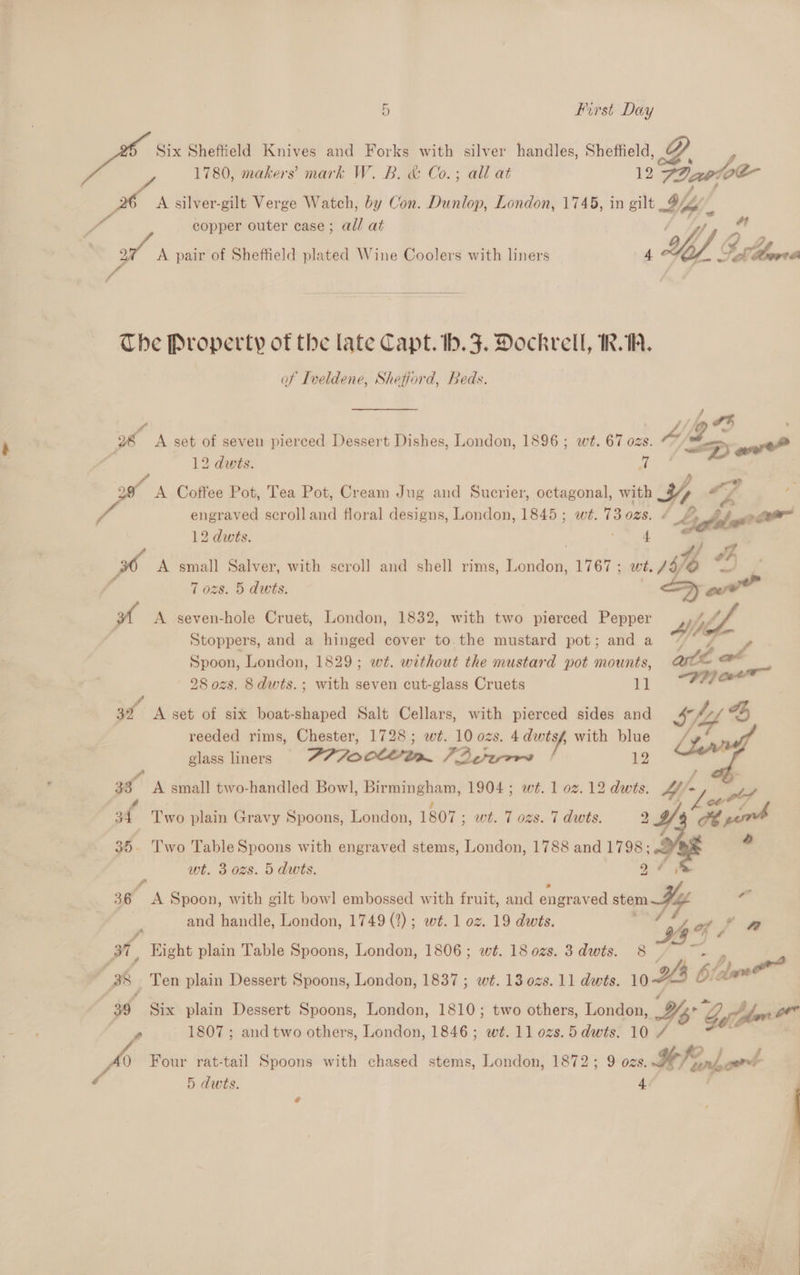 5 First Day
25 Six Sheffield Knives and Forks with silver handles, Sheffield,
1780, makers' mark W. B. & Co.; all at 12
26 A silver-gilt Verge Watch, by Con. Dunlop, London, 1745, in gilt
copper outer case; all at
27 A pair of Sheffield plated Wine Coolers with liners 4
The Property of the late Capt. H. J. Dockrell, R.N.
of Iveldene, Shefford, Beds.
28 A set of seven pierced Dessert Dishes, London, 1896; wt. 67 ozs.
12 dwts. 7
29 A Coffee Pot, Tea Pot, Cream Jug and Sucrier, octagonal, with
engraved scroll and floral designs, London, 1845; wt. 73 ozs.
12 dwts. 4
30 A small Salver, with scroll and shell rims, London, 1767; wt.
7 ozs. 5 dwts.
31 A seven-hole Cruet, London, 1832, with two pierced Pepper
Stoppers, and a hinged cover to the mustard pot; and a
Spoon, London, 1829; wt. without the mustard pot mounts,
28 ozs. 8 dwts.; with seven cut-glass Cruets 11
32 A set of six boat-shaped Salt Cellars, with pierced sides and
reeded rims, Chester, 1728; wt. 10 ozs. 4 dwts, with blue
glass liners 12
33 A small two-handled Bowl, Birmingham, 1904; wt. 1 oz. 12 dwts.
34 Two plain Gravy Spoons, London, 1807; wt. 7 ozs. 7 dwts. 2
35 Two Table Spoons with engraved stems, London, 1788 and 1798;
wt. 3 ozs. 5 dwts. 2
36 A Spoon, with gilt bowl embossed with fruit, and engraved stem
and handle, London, 1749 (?); wt. 1 oz. 19 dwts.
37 Eight plain Table Spoons, London, 1806; wt. 18 ozs. 3 dwts. 8
38 Ten plain Dessert Spoons, London, 1837; wt. 13 ozs. 11 dwts. 10
39 Six plain Dessert Spoons, London, 1810; two others, London,
1807; and two others, London, 1846; wt. 11 ozs. 5 dwts. 10
40 Four rat-tail Spoons with chased stems, London, 1872; 9 ozs.
5 dwts. 4